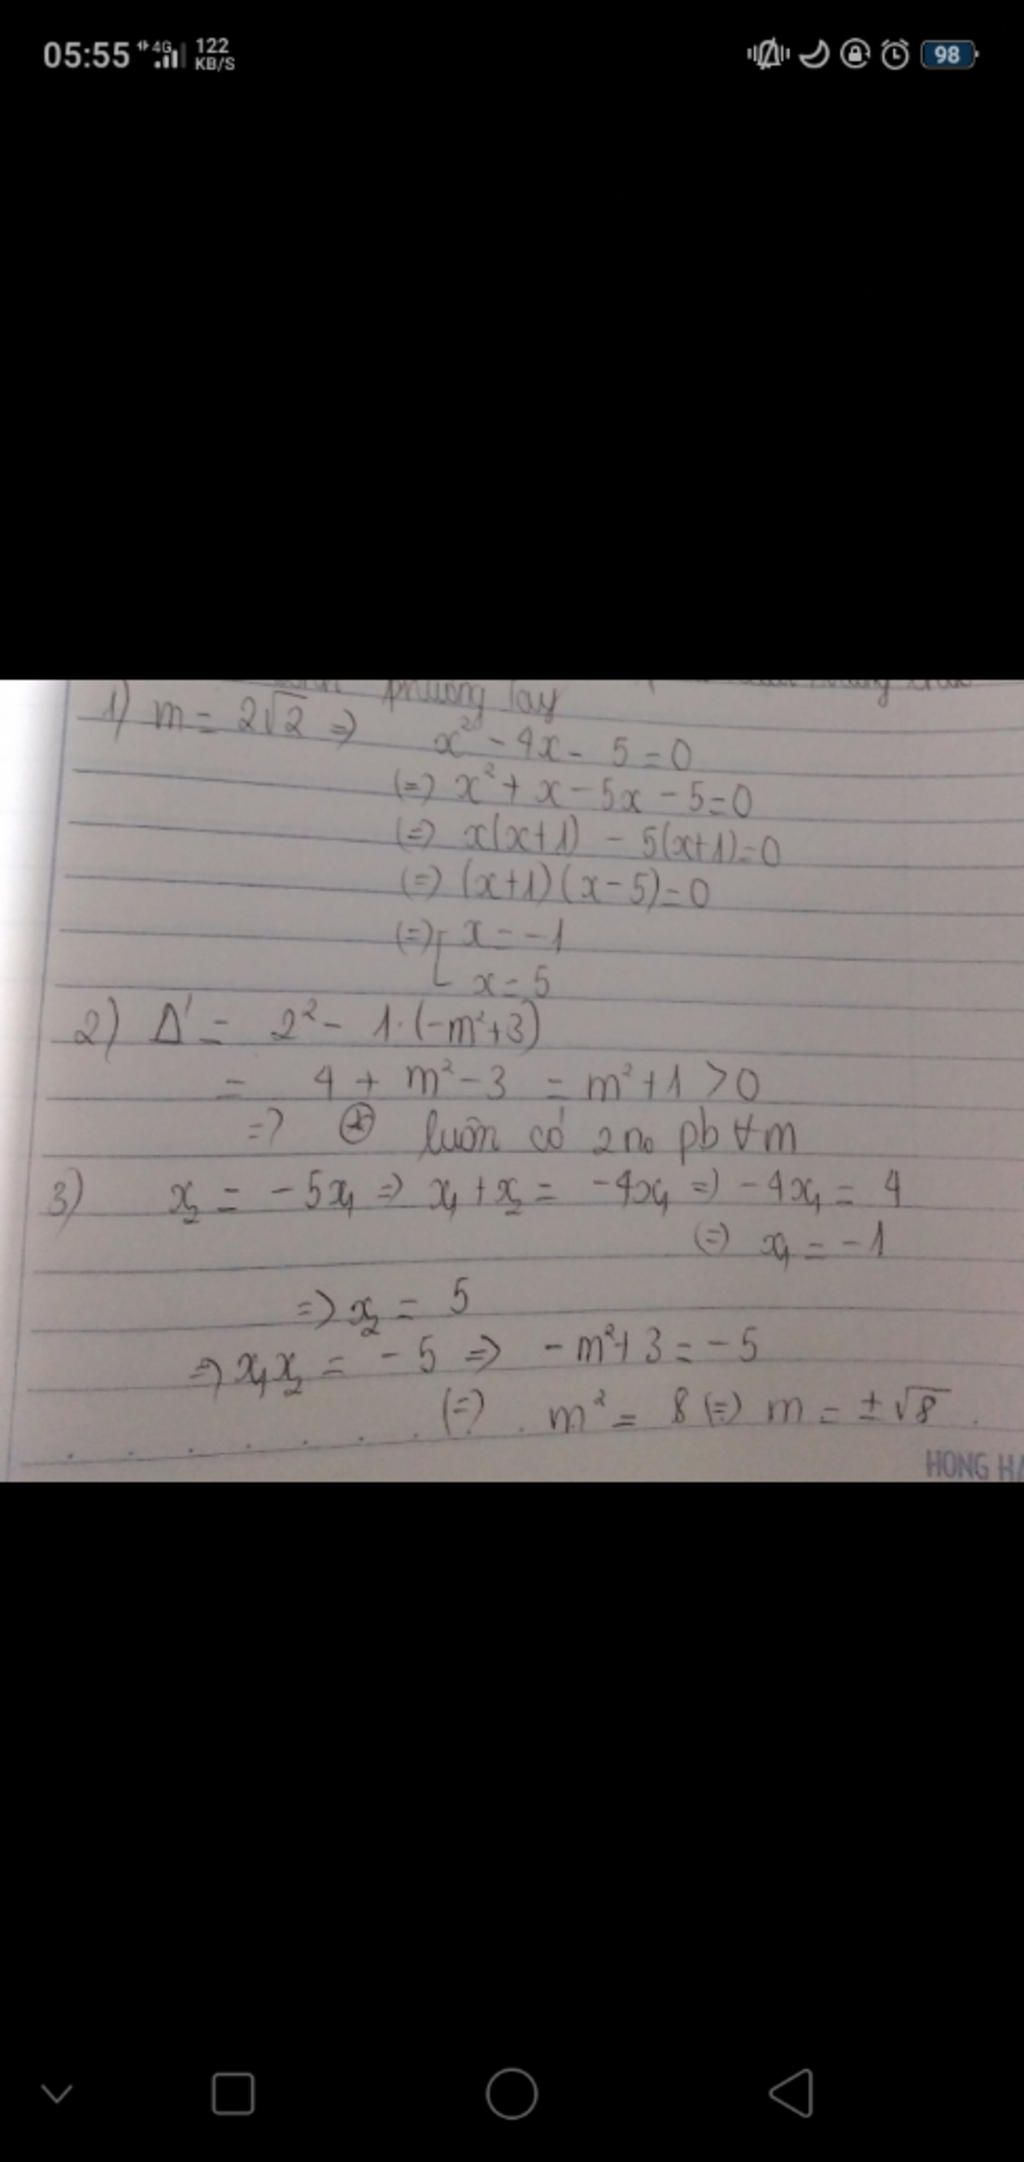 05:55 4G 122 KB/S 98
phương Tay
1) m = 2√2 => x² - 4x - 5 = 0
(=) x² + x - 5x - 5 = 0
(=) x(x+1) - 5(x+1) = 0
(=) (x+1)(x-5) = 0
(=) [ x = -1
x = 5
2) Δ' = 2² - 1.(-m²+3)
= 4 + m² - 3 = m² + 1 > 0
=> (*) luôn có 2 no pb ∀m
3) x₂ = -5x₁ => x₁ + x₂ = -4x₁ => -4x₁ = 4
(=) x₁ = -1
=> x₂ = 5
=> x₁x₂ = -5 => -m² + 3 = -5
(=) m² = 8 (=) m = ±√8
HONG HA